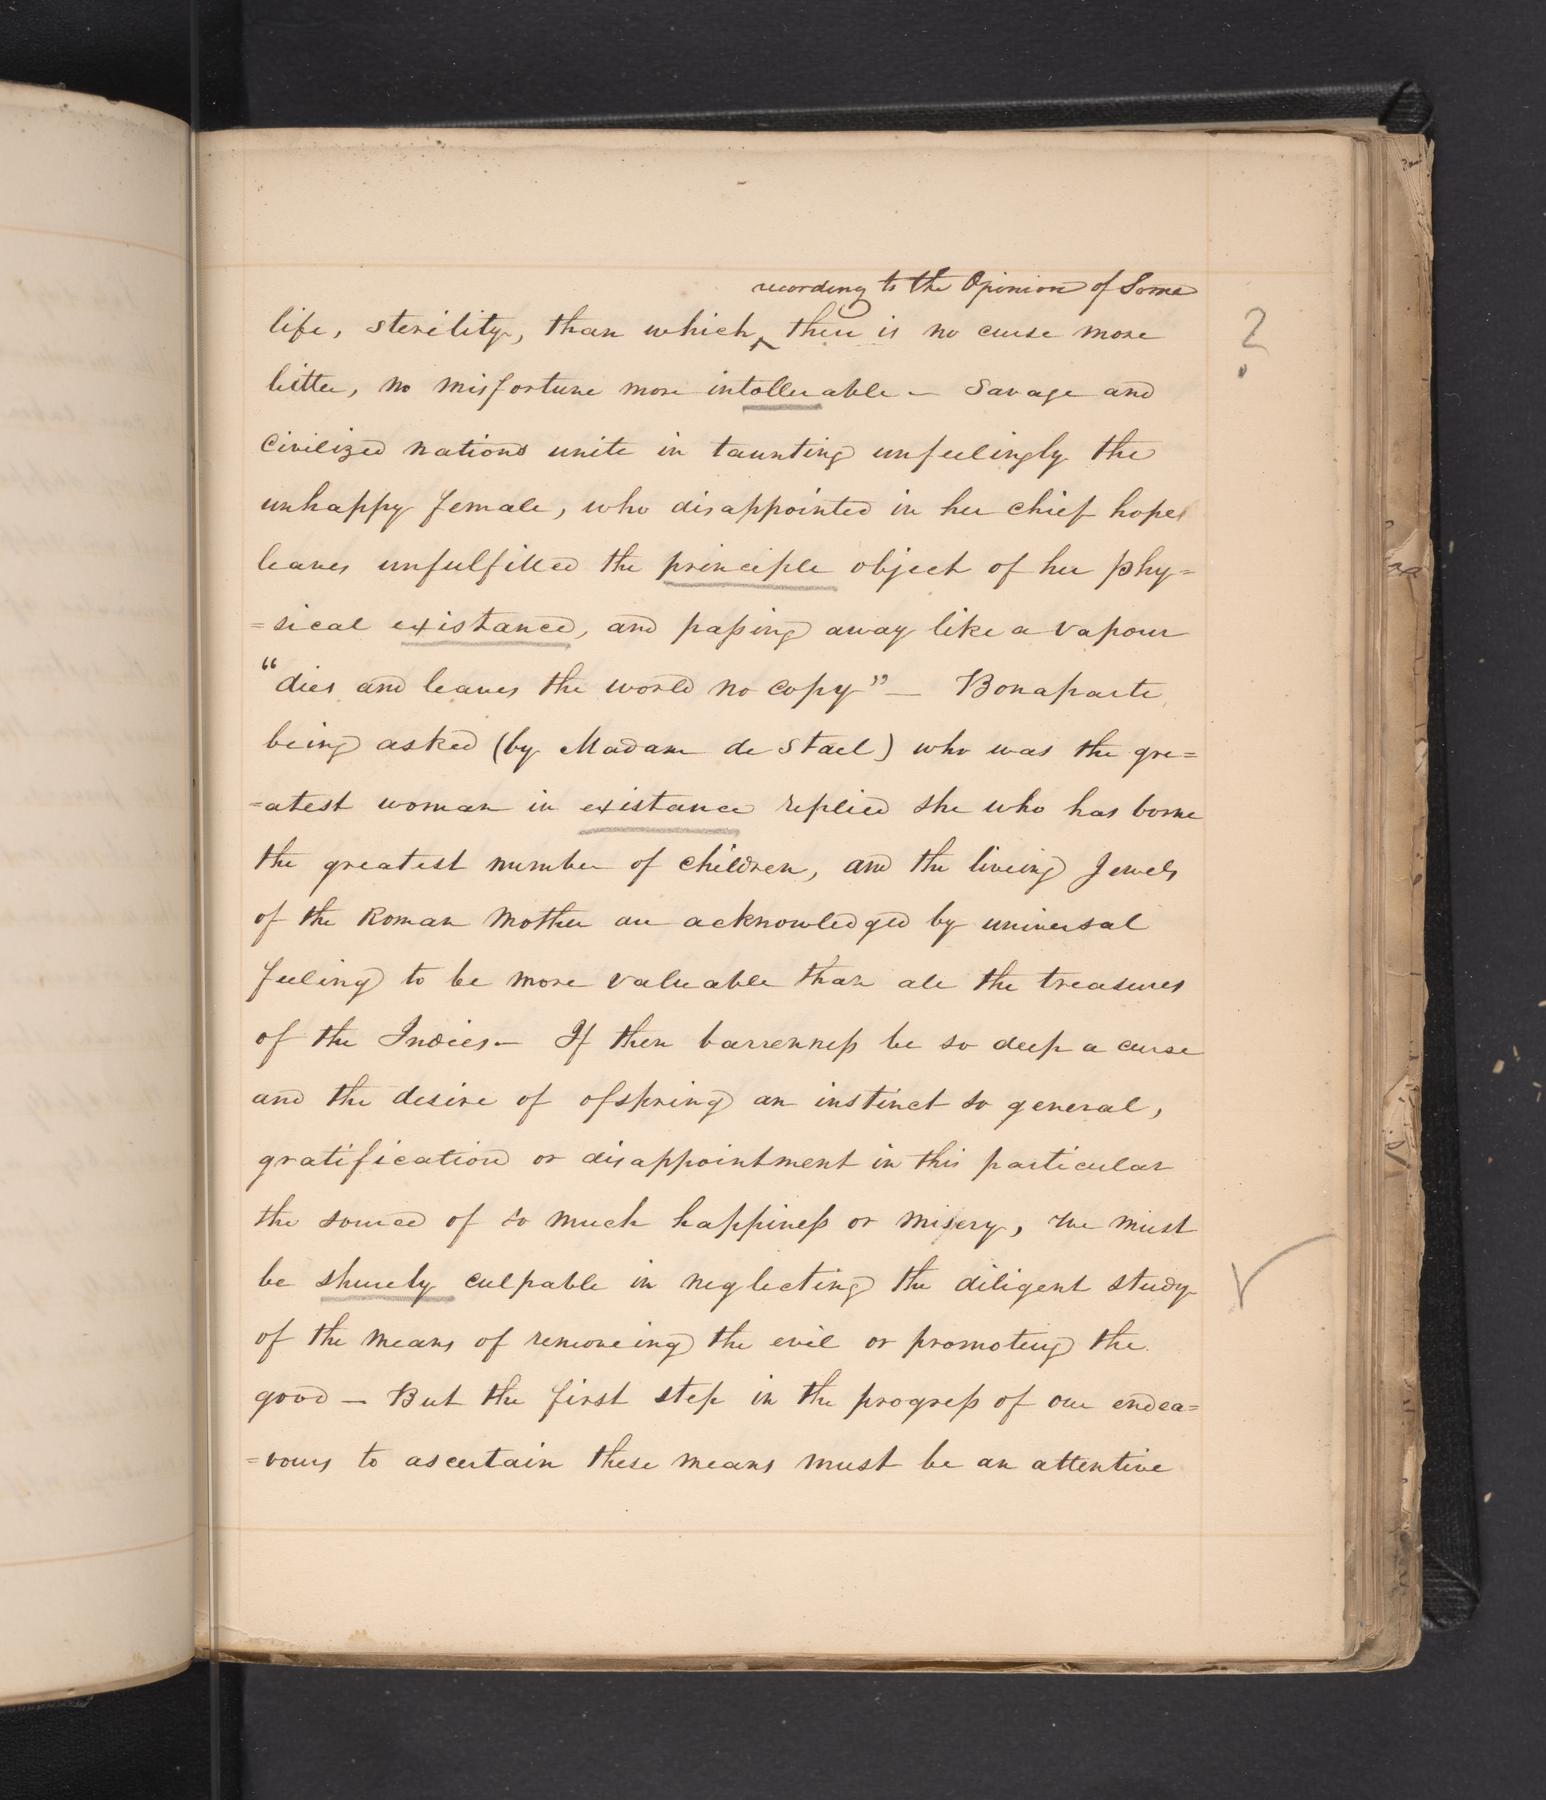 according to the Opinion of Some
life, sterility, than which ‸ there is no curse more
bitter, no misfortune more intollerable — Savage and
civilized nations unite in taunting unfeelingly the
unhappy female, who disappointed in her chief hopes
leaves unfulfilled the principle object of her phy=
=sical existance, and passing away like a vapour
“dies and leaves the world no copy” — Bonaparte
being asked (by Madam de Stael) who was the gre=
=atest woman in existance replied she who has borne
the greatest number of children, and the liveing Jewels
of the Roman Mother are acknowledged by universal
feeling to be more valueable than all the treasures
of the Indies — If then barrenness be so deep a curse
and the desire of ofspring an instinct so general,
gratification or disappointment in this particular
the source of so much happiness or misery, we must
be shurely culpable in neglecting the diligent study
of the means of removeing the evil or promoting the
good — But the first step in the progress of our endea=
=vours to ascertain these means must be an attentive